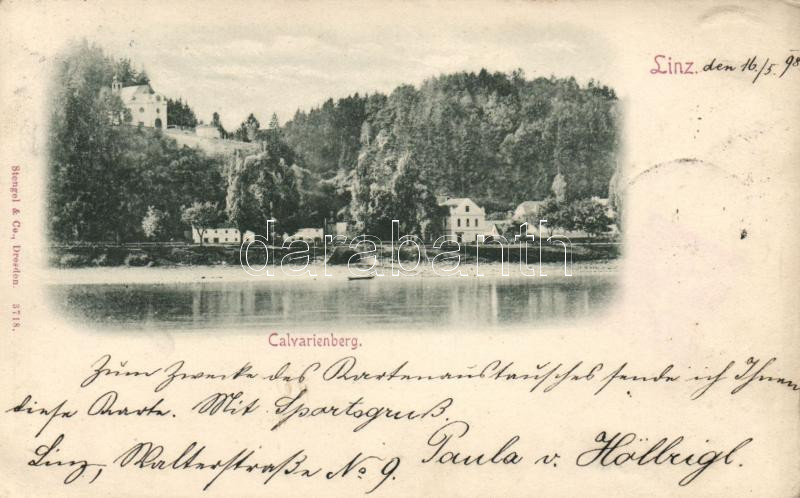 Linz. den 16./5. 98
Stengel & Co., Dresden. 3718.
darabanth
Calvarienberg.
Zum Zwecke des Kartenaustausches sende ich Ihnen
diese Karte. Mit Sportsgruß.
Linz, Walterstraße No 9. Paula v. Höllrigl.